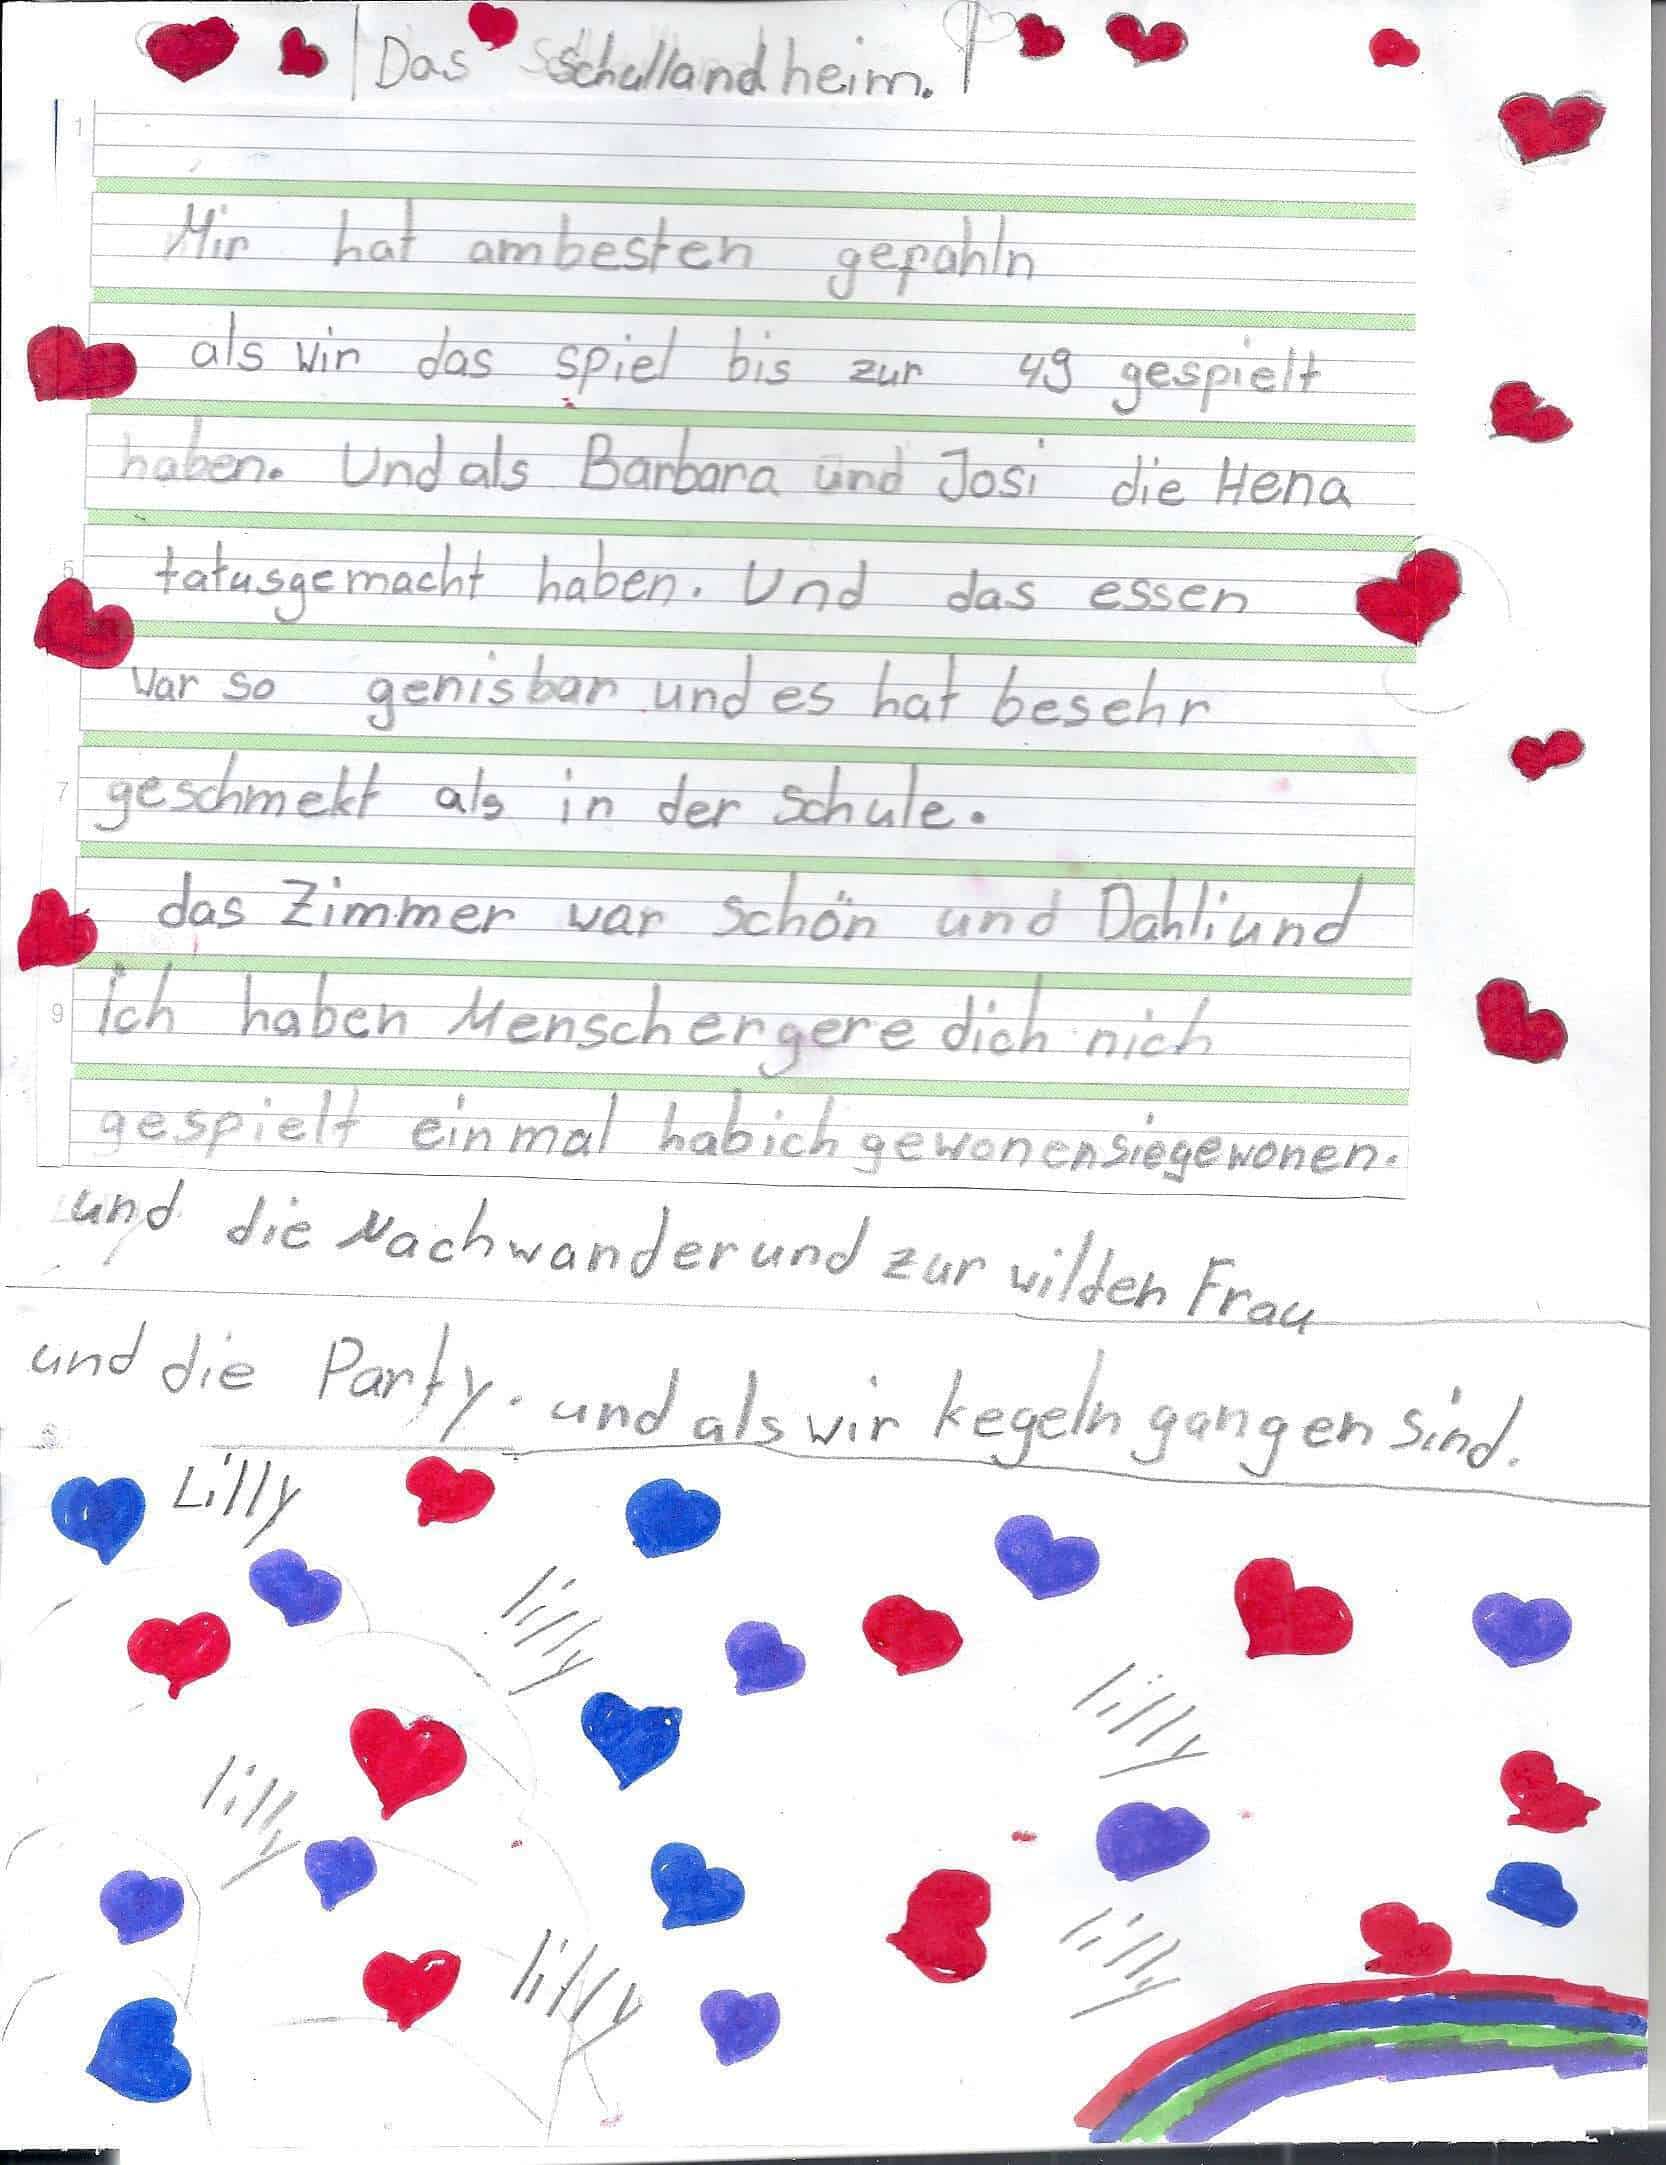 Das Schullandheim.
1
Mir hat ambesten gefahln
als wir das spiel bis zur 49 gespielt
haben. Und als Barbara und Josi die Hena
5 tatusgemacht haben. Und das essen
war so genisbar und es hat besehr
7 geschmekt als in der Schule.
das Zimmer war schön und Dahli und
9 ich haben Mensch ergere dich nich
gespielt einmal habich gewonen siegewonen.
und die Nachwanderund zur wilden Frau
und die Party. und als wir kegeln gangen sind.
Lilly
lilly
lilly
lilly
lilly
lilly